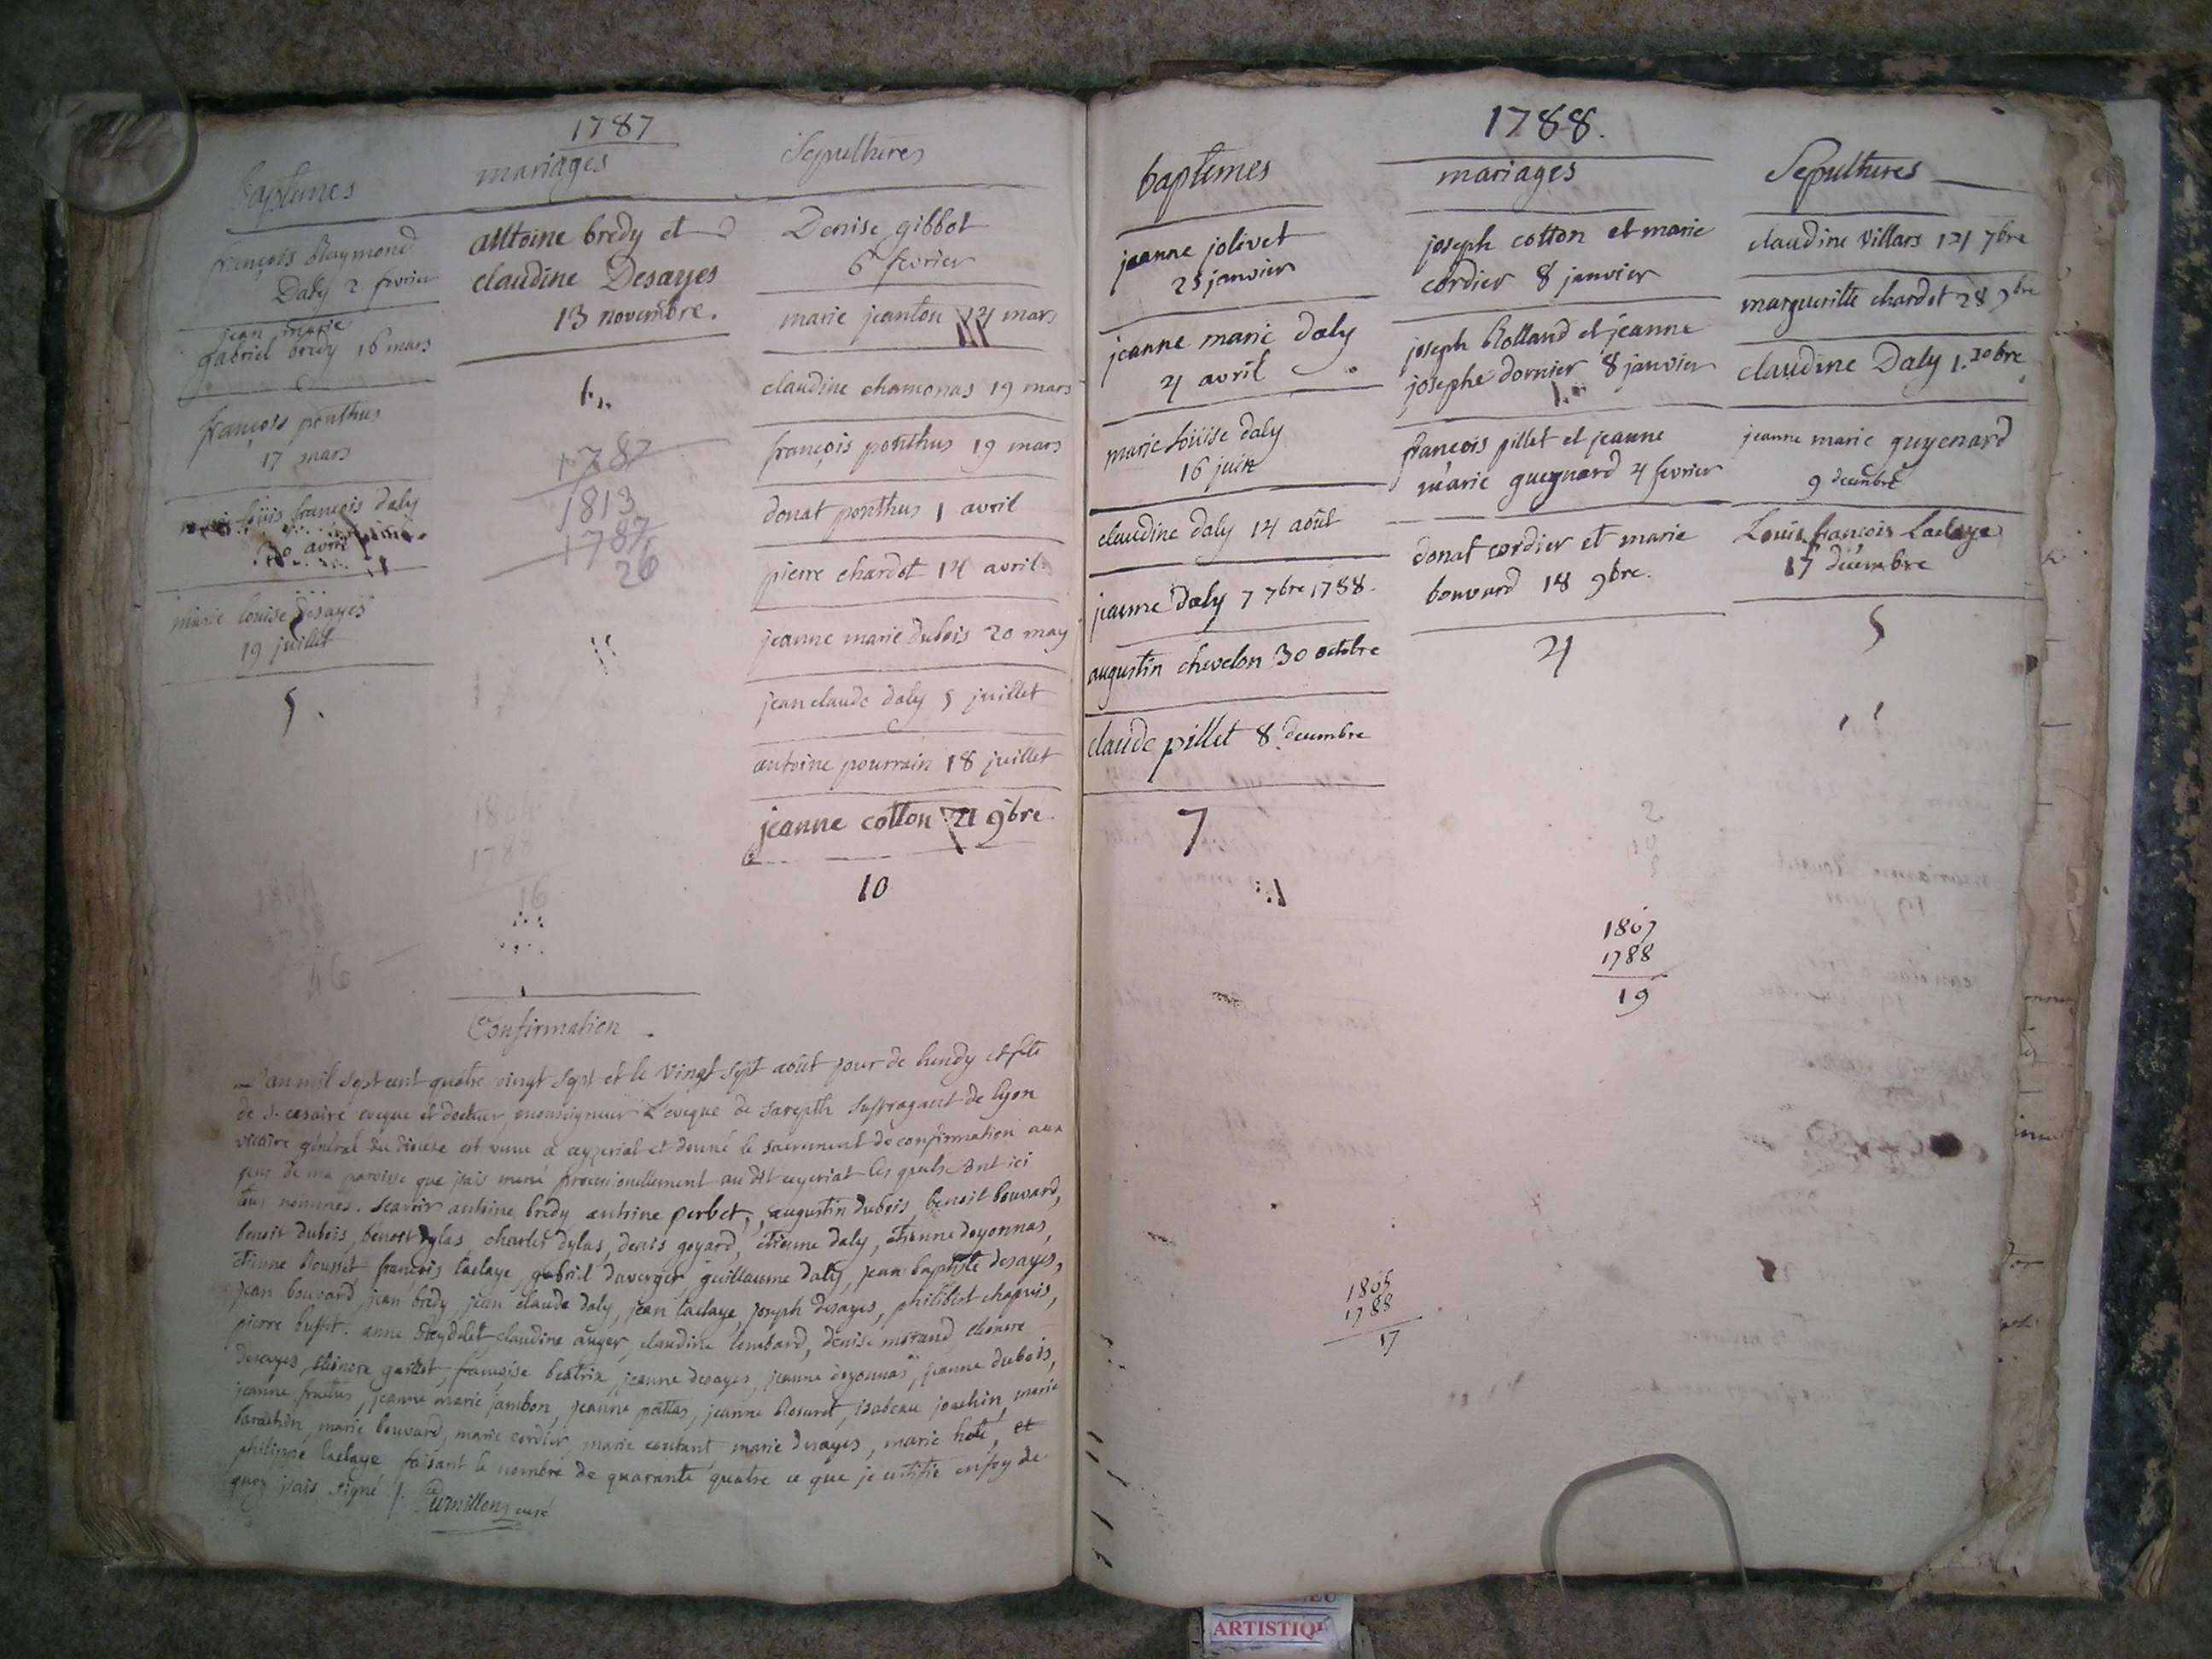 1787
baptemes
françois Raymond
Daly 2 fevrier
jean marie
gabriel bredy 16 mars
françois ponthus
17 mars
loüis françois daly
30 avril
marie louise Desayes
19 juillet
5.
mariages
antoine bredy et
claudine Desayes
13 novembre.
1.
1787
1813
1787
26
16
Sepultures
Denise gibbot
6 fevrier
marie jeanton 14 mars
claudine chamonas 19 mars
françois ponthus 19 mars
donat ponthus 1 avril
pierre chardot 14 avril
jeanne marie dubois 20 may
jean claude daly 5 juillet
antoine pourrain 18 juillet
jeanne cotton 21 9bre
10
Confirmation
L'an mil sept cent quatre vingt sept et le vingt sept août jour de lundy et fête
de s. cesaire eveque et docteur, monseigneur L'eveque de sarepth suffragant de lyon
vicaire général du diocese est venu a ceyzeriat et donné le sacrement de confirmation aux
gens de ma paroisse que j'ais mené processionellement au dit ceyzeriat les quels sont ici
tous nommes. Scavoir antoine bredy antoine perbet, augustin dubois, benoit bouvard,
benoit dubois, benoit dylas charles dylas, denis goyard, etienne daly, etienne doyonnas,
etienne Rousset françois laelaye, gabriel daverger, guillaume daly, jean baptiste desayes,
jean bouvard, jean bredy, jean claude daly, jean laelaye, joseph desayes, philibert chapuis,
pierre buffet. anne Reydelet, claudine auger, claudine lombard, denise morand, elionore
desayes, elionore gaillot, françoise beatrix, jeanne desayes, jeanne doyonnas, jeanne dubois,
jeanne fruitus, jeanne marie jambon, jeanne jeanne Rosuret, isabeau jouchin, marie
marie bouvard, marie cordier, marie coutant marie desayes, marie et
philippe laelaye faisant le nombre de quarante quatre ce que je certifie en foy de
quoy j'ais signé /. curé
1788.
baptemes
jeanne jolivet
25 janvier
jeanne marie daly
4 avril
marie loüise daly
16 juin
claudine daly 14 août
jeanne daly 7 7bre 1788.
augustin chevelon 30 octobre
claude pillet 8 decembre
7
mariages
joseph cotton et marie
cordier 8 janvier
joseph Rolland et jeanne
josephe dornier 8 janvier
françois pillet et jeanne
marie guegnard 4 fevrier
donat cordier et marie
bouvard 18 9bre.
4
1807
1788
19
1805
1788
17
Sepultures
claudine villars 14 7bre
margueritte chardot 28 9bre
claudine Daly 1. 10bre
jeanne marie guyenard
9 decembre
Louis françois Laelaye
17 decembre
5
ARTISTIQ